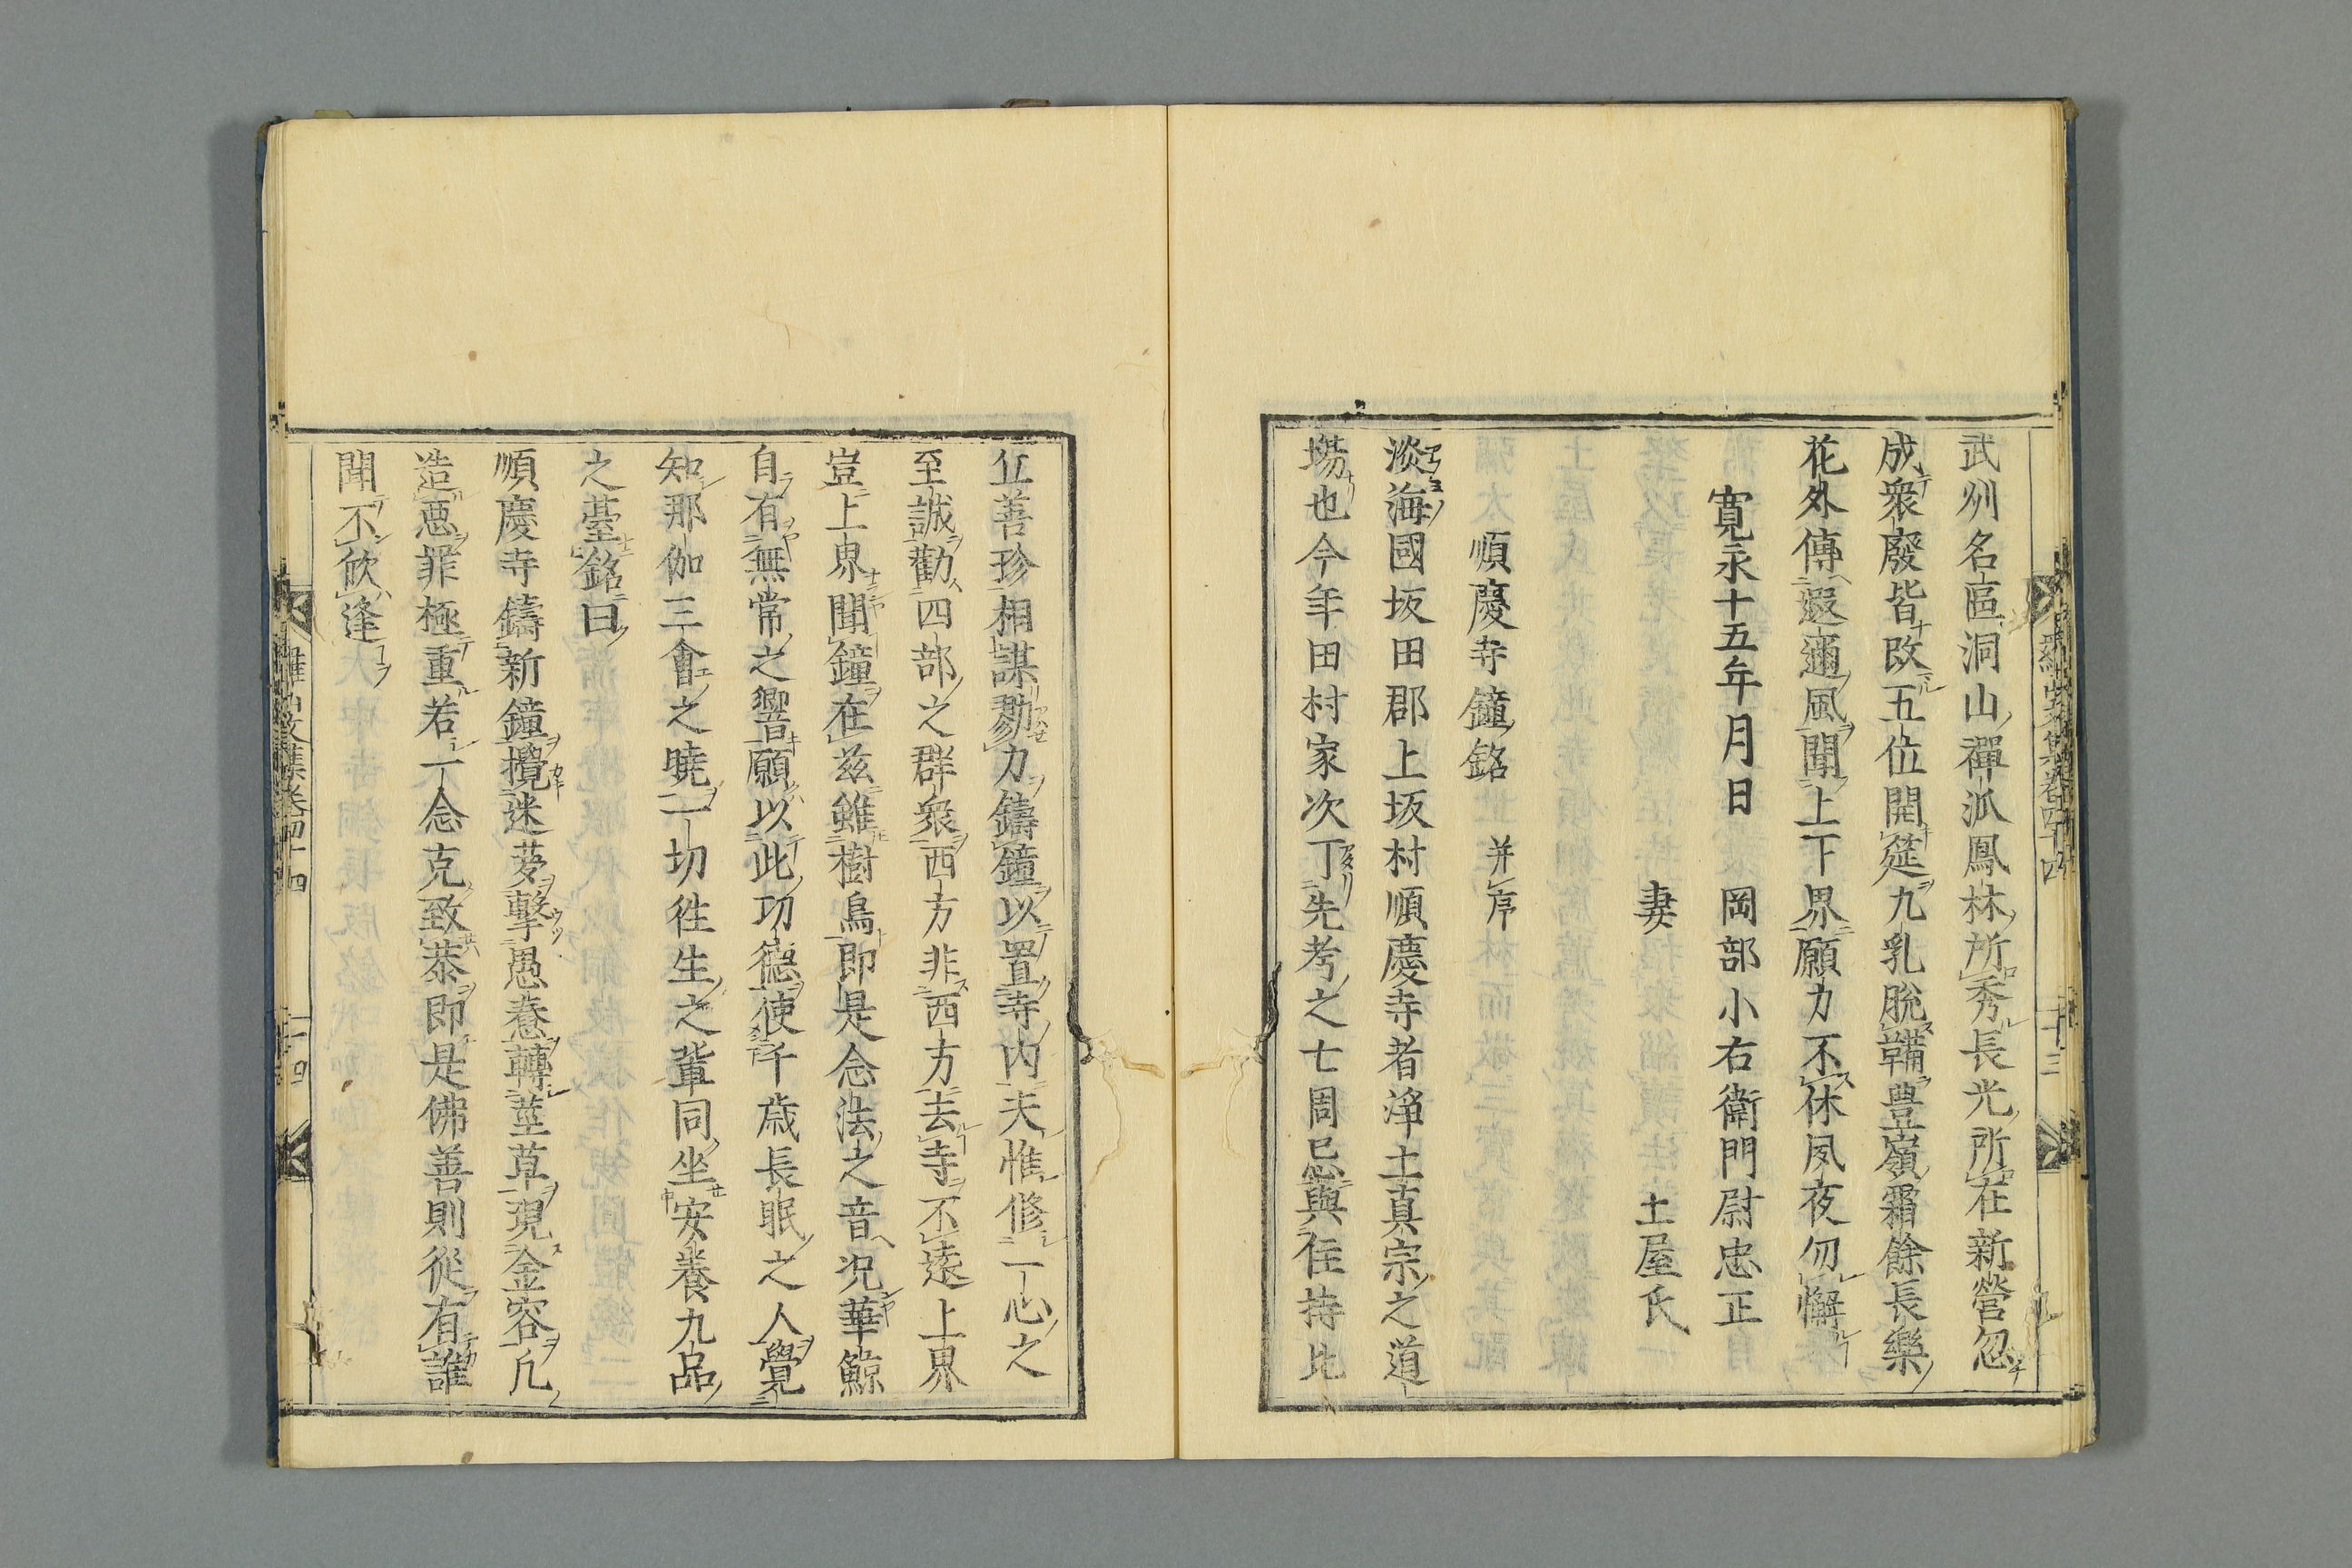 武州名區洞山禪派鳳林所秀長光所在新營忽
成衆廢皆改五位開筵九乳脫鞴豊嶺霜餘長樂
花外傳遐邇風聞上下界願力不休夙夜勿懈
寛永十五年月日　岡部小右衛門尉忠正
妻　土屋氏
順慶寺鐘銘　并序
淡海國坂田郡上坂村順慶寺者淨土真宗之道
場也今年田村家次丁先考之七周忌與住持比
丘善珍相謀勠力鑄鐘以置寺内夫惟修一心之
至誠勸四部之群衆西方非西方去寺不遠上界
豈上界聞鐘在兹雖樹鳥即是念法之音況華鯨
自有無常之響願以此功德使千歳長眠之人覺
知那伽三會之曉一切徃生之輩同坐安養九品
之臺銘曰
順慶寺鑄新鐘攪迷夢擊愚惷轉莖草現金容凡
造惡罪極重若一念克致恭即是佛善則從有誰
聞不欣逢